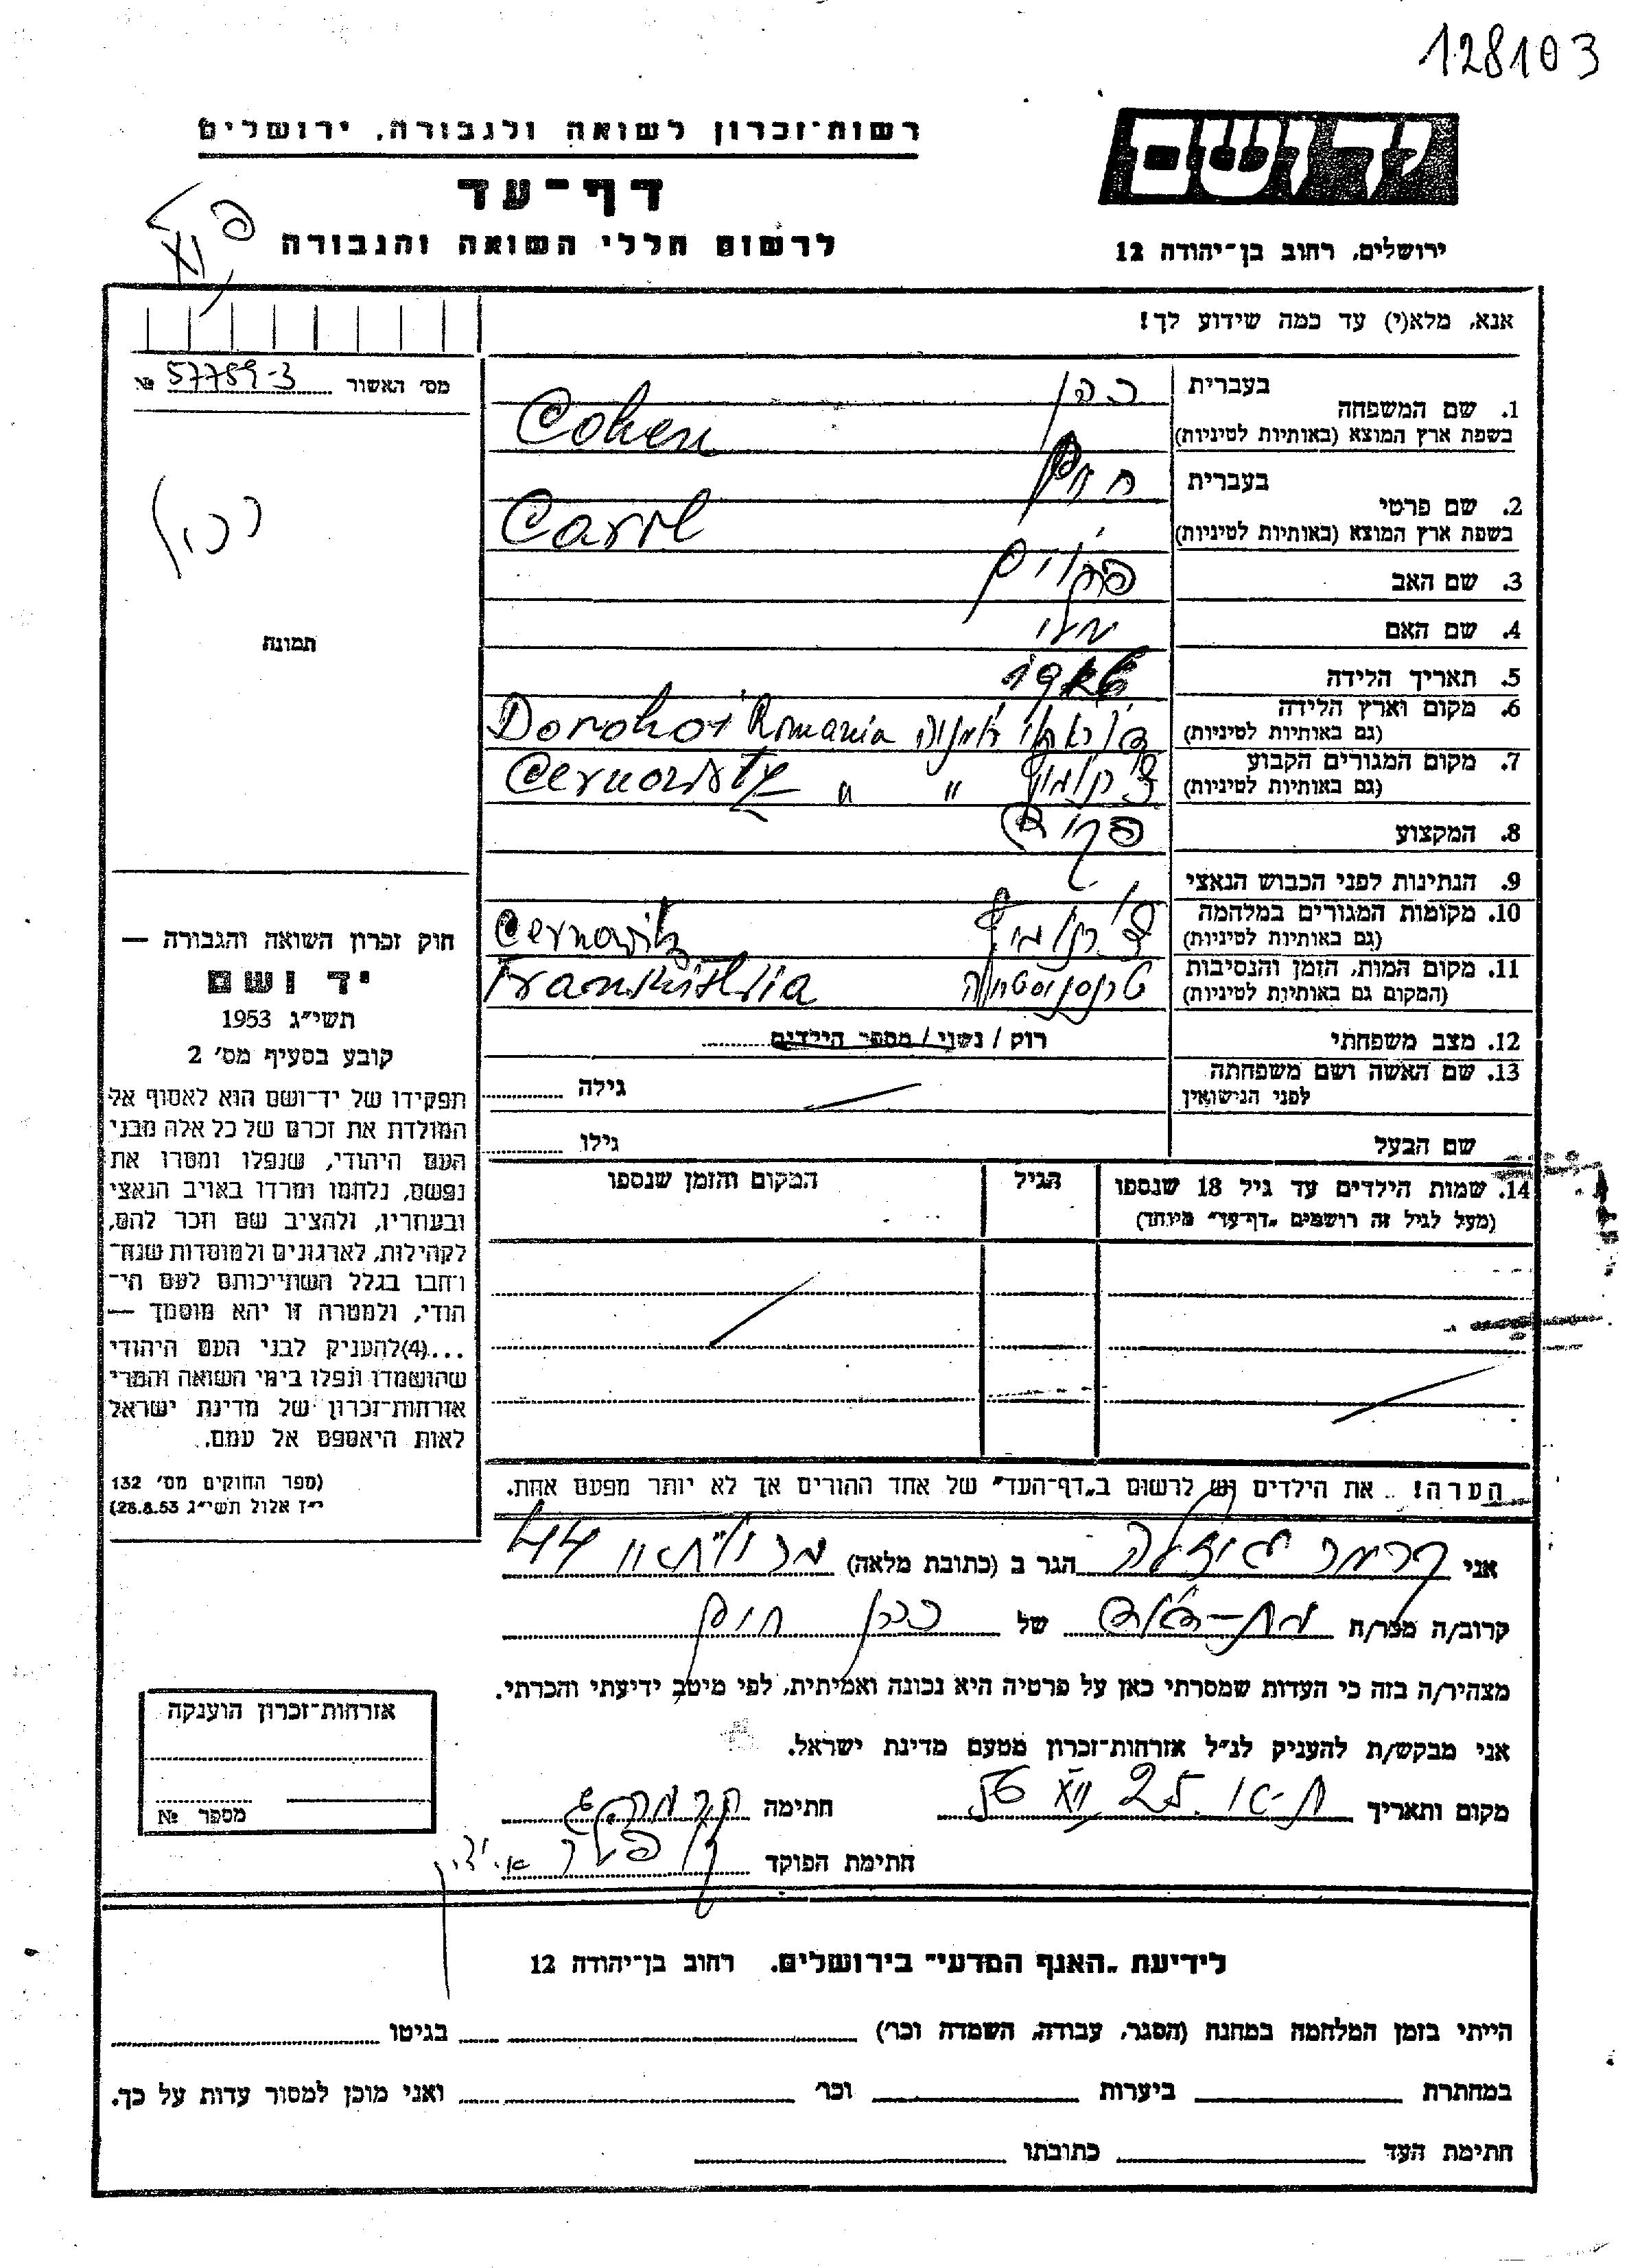 128103
יד ושם
רשות־זכרון לשואה ולגבורה, ירושלים
דף־עד
לרשום חללי השואה והגבורה
ירושלים, רחוב בן־יהודה 12
אנא, מלא(י) עד כמה שידוע לך!
מס׳ האשור 57759-3 №
1. שם המשפחה
בעברית כהן
בשפת ארץ המוצא (באותיות לטיניות) Cohen
2. שם פרטי
בעברית חיים
בשפת ארץ המוצא (באותיות לטיניות) Carol
3. שם האב
4. שם האם
5. תאריך הלידה
6. מקום וארץ הלידה
(גם באותיות לטיניות) רומניה Dorohoi Romania
7. מקום המגורים הקבוע
(גם באותיות לטיניות) צ׳רנוביץ " " Cernowitz
8. המקצוע פקיד
9. הנתינות לפני הכבוש הנאצי
10. מקומות המגורים במלחמה
(גם באותיות לטיניות) צ׳רנוביץ Cernowitz
11. מקום המות, הזמן והנסיבות
(המקום גם באותיות לטיניות) טרנסניסטריה
12. מצב משפחתי רוק / נשוי / מספר הילדים
13. שם האשה ושם משפחתה
לפני הנישואין גילה
שם הבעל גילו
14. שמות הילדים עד גיל 18 שנספו הגיל המקום והזמן שנספו
(מעל לגיל זה רושמים „דף־עד" מיוחד)
הערה! את הילדים יש לרשום ב„דף־העד" של אחד ההורים אך לא יותר מפעם אחת.
תמונה
חוק זכרון השואה והגבורה —
יד ושם
תשי״ג 1953
קובע בסעיף מס׳ 2
תפקידו של יד־ושם הוא לאסוף אל
המולדת את זכרם של כל אלה מבני
העם היהודי, שנפלו ומסרו את
נפשם, נלחמו ומרדו באויב הנאצי
ובעוזריו, ולהציב שם וזכר להם,
לקהילות, לארגונים ולמוסדות שנח־
רבו בגלל השתייכותם לעם הי־
הודי, ולמטרה זו יהא מוסמך —
...(4)להעניק לבני העם היהודי
שהושמדו ונפלו בימי השואה והמרי
אזרחות־זכרון של מדינת ישראל
לאות היאספם אל עמם.
(ספר החוקים מס׳ 132
י״ז אלול תשי״ג 28.8.53)
אני קרמר הגר ב (כתובת מלאה) 44
קרוב/ה מכר/ה בת-דוד של כהן חיים
מצהיר/ה בזה כי העדות שמסרתי כאן על פרטיה היא נכונה ואמיתית, לפי מיטב ידיעתי והכרתי.
אני מבקש/ת להעניק לנ״ל אזרחות־זכרון מטעם מדינת ישראל.
מקום ותאריך ת-א 25 חתימה
חתימת הפוקד
אזרחות־זכרון הוענקה
מספר №
לידיעת „האגף המדעי" בירושלים, רחוב בן־יהודה 12
הייתי בזמן המלחמה במחנה (הסגר, עבודה, השמדה וכר׳) בגיטו
במחתרת ביערות וכר׳ ואני מוכן למסור עדות על כך.
חתימת העד כתובתו